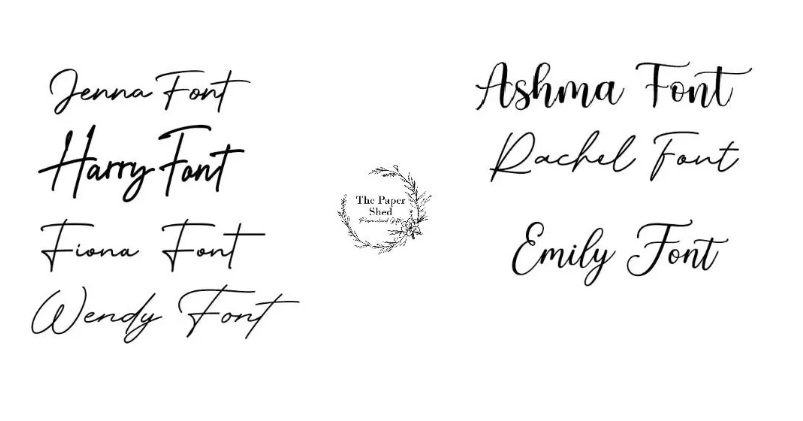 Jenna Font
Harry Font
Fiona Font
Wendy Font
The Paper
Shed
Personalised Gifts
Ashma Font
Rachel Font
Emily Font